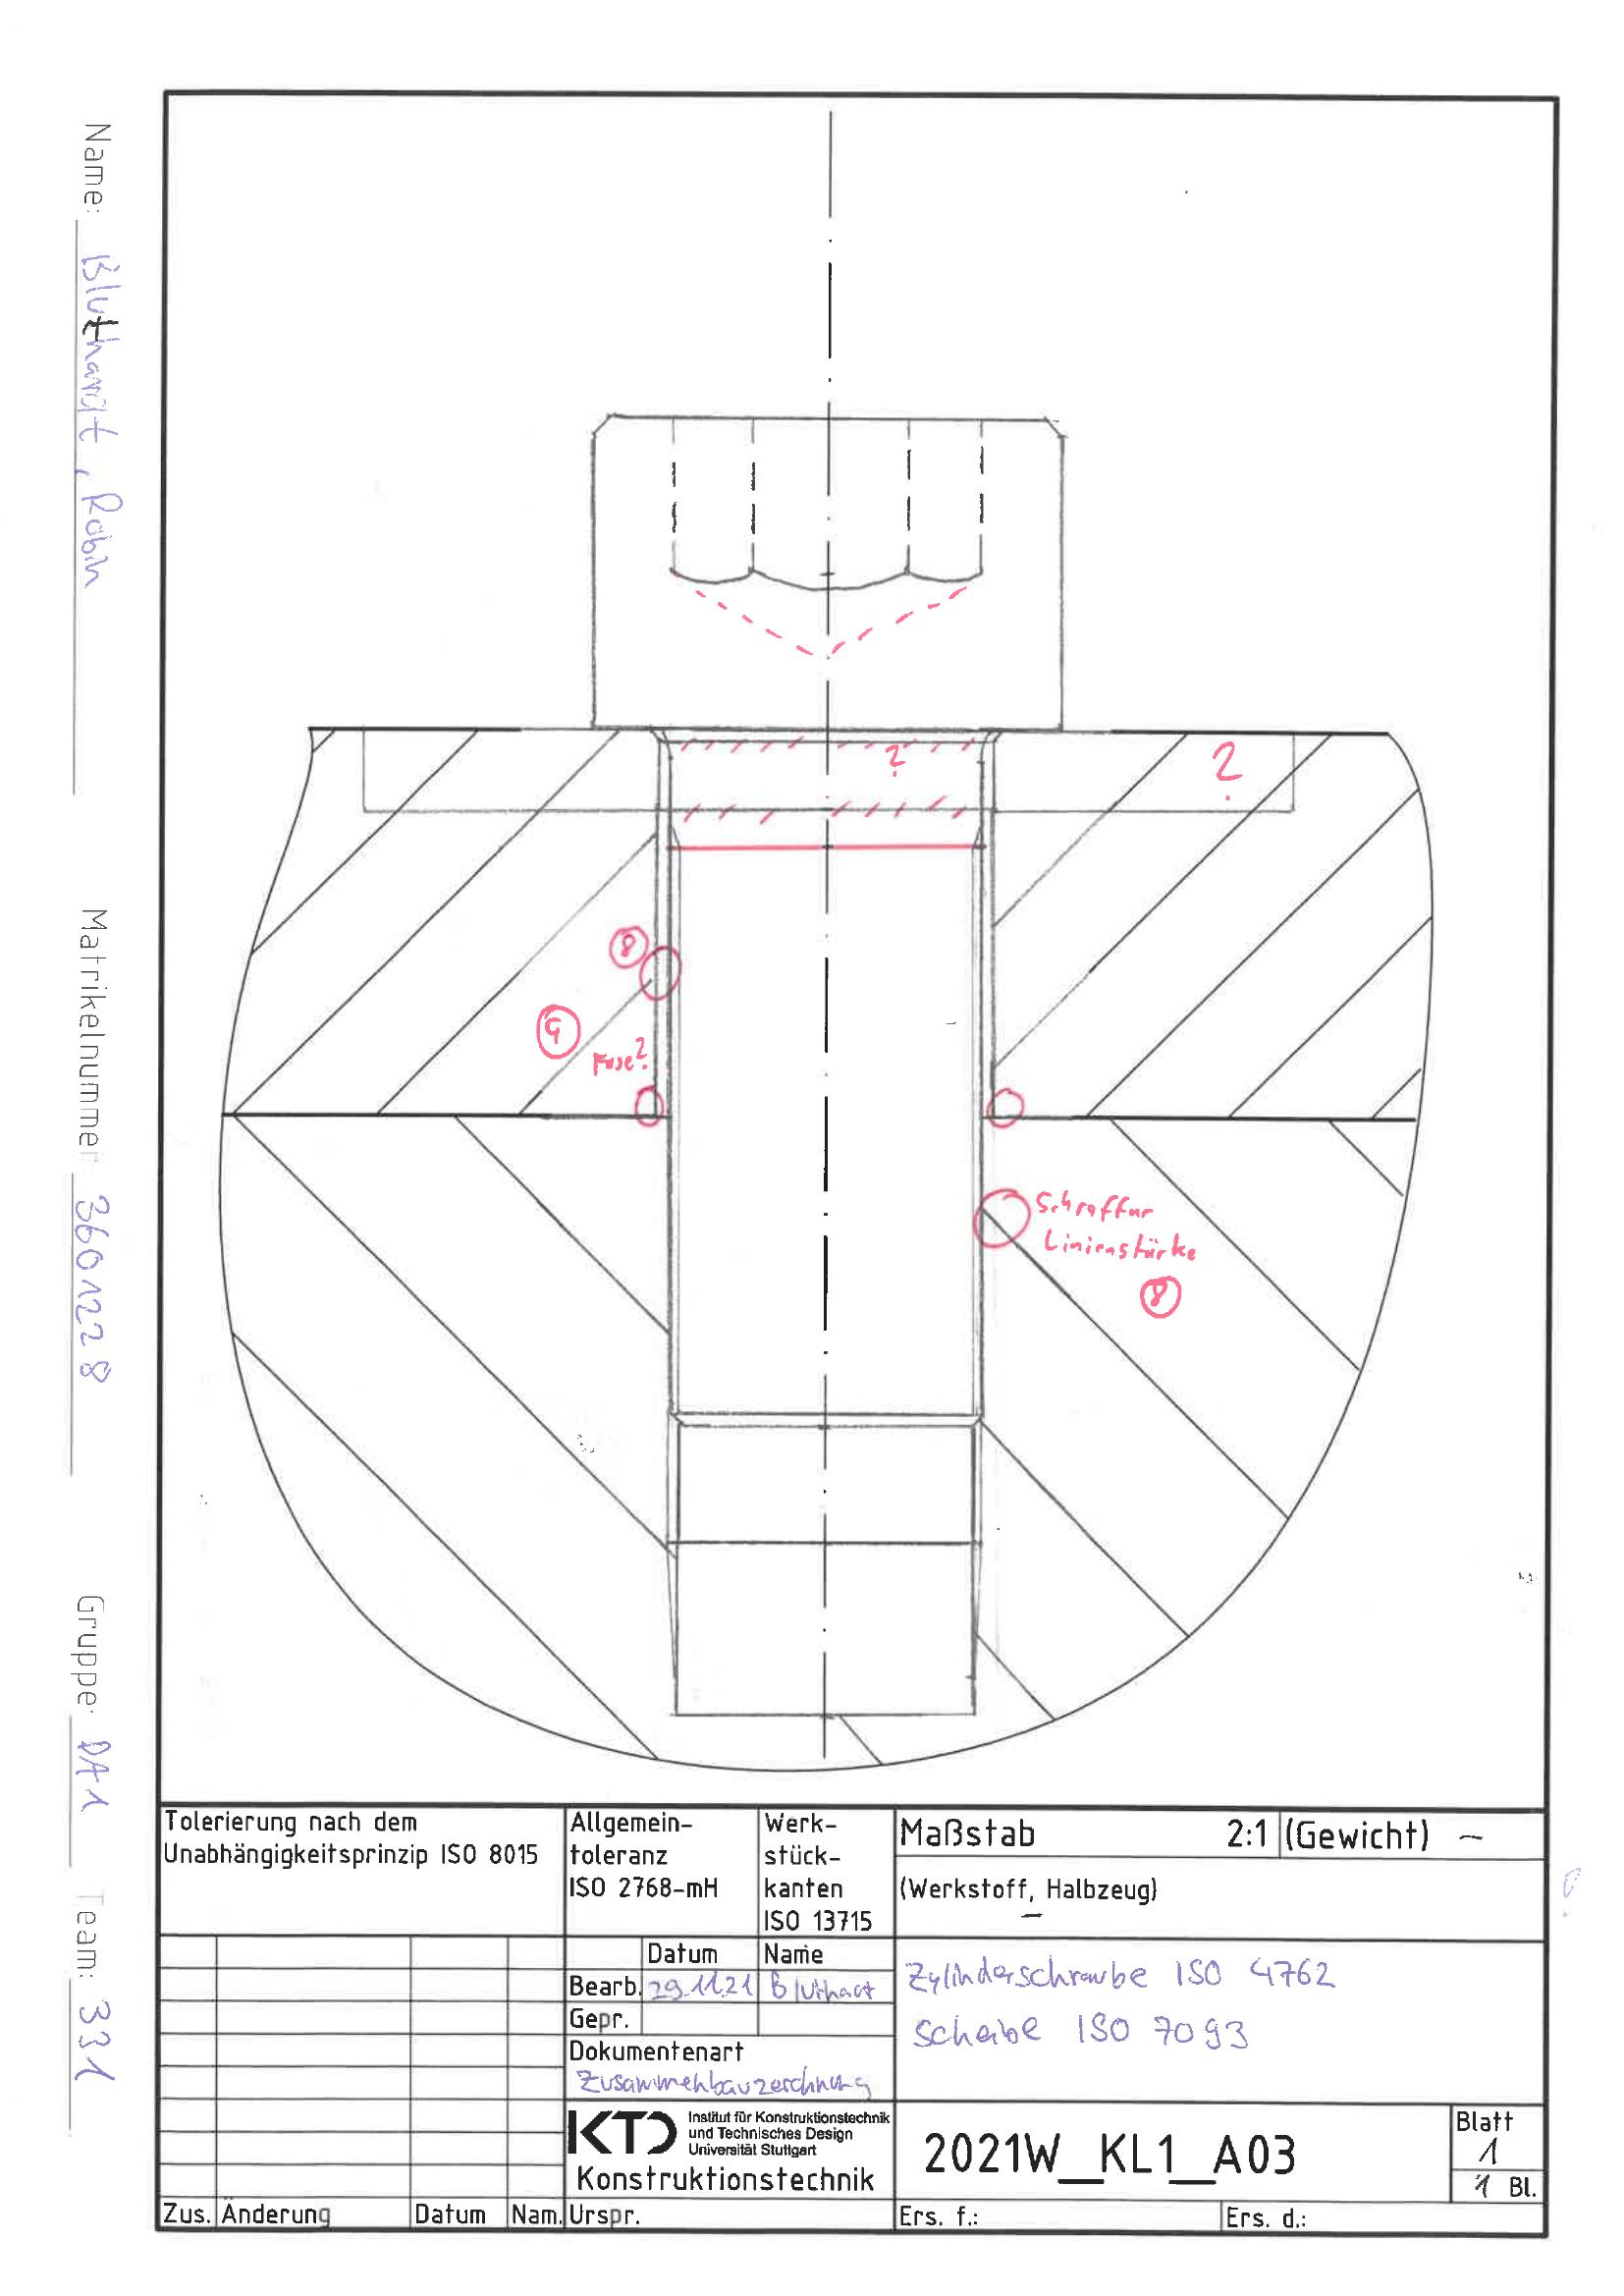 Name: Bluthardt, Robin
Matrikelnummer 3601228
Gruppe: DA1
Team: 331
?
?
8
9
Fase?
Schraffur
Linienstärke
8
Tolerierung nach dem
Unabhängigkeitsprinzip ISO 8015
Allgemein-
toleranz
ISO 2768-mH
Werk-
stück-
kanten
ISO 13715
Maßstab 2:1 (Gewicht) –
(Werkstoff, Halbzeug)
–
Datum Name
Bearb. 29.11.21
Gepr.
Dokumentenart
Zusammenbauzeichnung
Zylinderschraube ISO 4762
Scheibe ISO 7093
KTD Institut für Konstruktionstechnik
und Technisches Design
Universität Stuttgart
Konstruktionstechnik
2021W_KL1_A03
Blatt
1
1 Bl.
Zus. Änderung Datum Nam. Urspr. Ers. f.: Ers. d.: